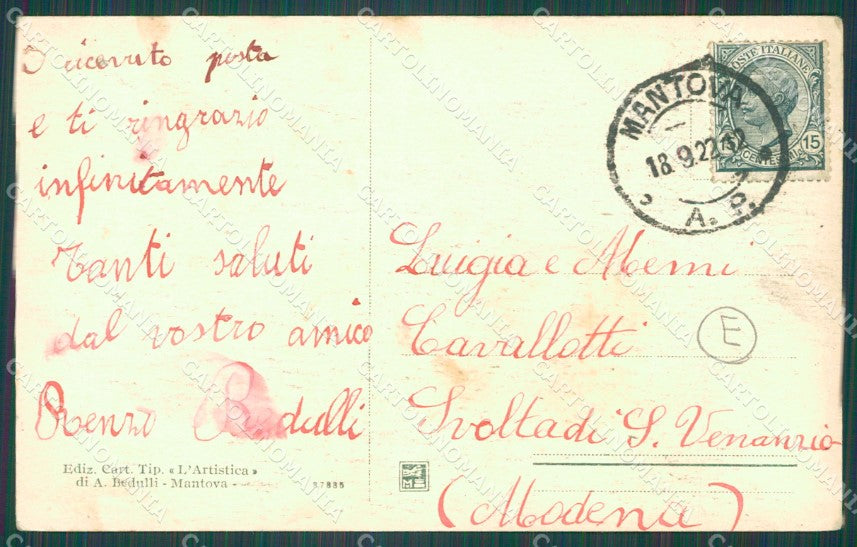 O ricevuto posta
e ti ringrazio
infinitamente
Tanti saluti
dal vostro amico
Renzo Bedulli
Ediz. Cart. Tip. «L'Artistica»
di A. Bedulli - Mantova -
37885
POSTE ITALIANE
15
CENTESIMI
MANTOVA
18.9.22
A. P.
E
Luigia e Memi
Cavallotti
Svolta di S. Venanzio
(Modena)
CARTOLINOMANIA